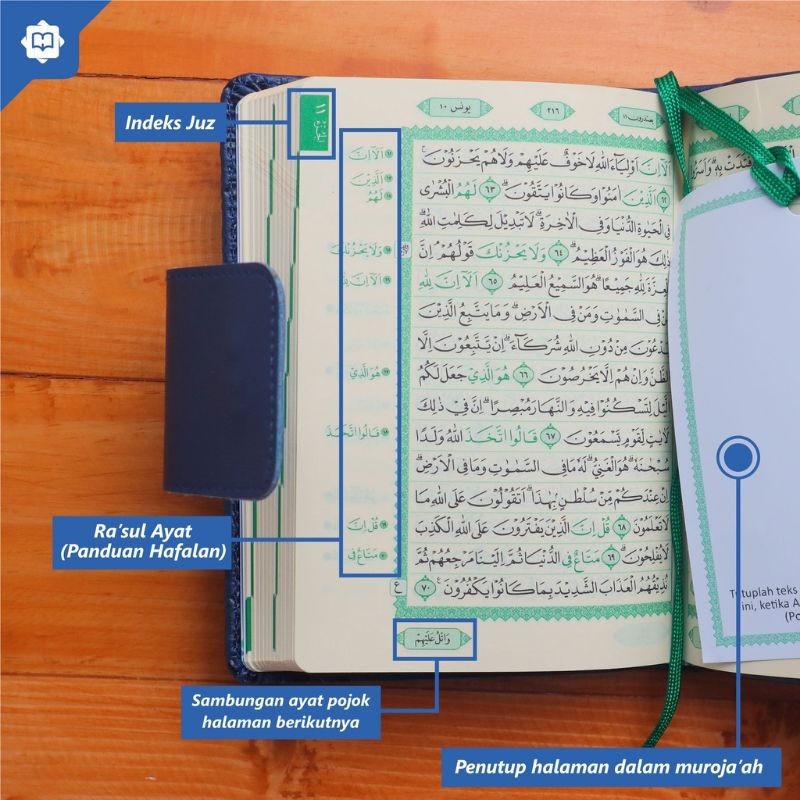 Indeks Juz
الجزء ١١
يونس ١٠
٢١٦
يعتذرون ١١
اَلَآ اِنَّ اَوْلِيَاۤءَ اللّٰهِ لَا خَوْفٌ عَلَيْهِمْ وَلَا هُمْ يَحْزَنُوْنَۚ
٦٢ اَلَّذِيْنَ اٰمَنُوْا وَكَانُوْا يَتَّقُوْنَۗ ٦٣ لَهُمُ الْبُشْرٰى
فِى الْحَيٰوةِ الدُّنْيَا وَفِى الْاٰخِرَةِۗ لَا تَبْدِيْلَ لِكَلِمٰتِ اللّٰهِۗ
ذٰلِكَ هُوَ الْفَوْزُ الْعَظِيْمُۗ ٦٤ وَلَا يَحْزُنْكَ قَوْلُهُمْۘ اِنَّ
الْعِزَّةَ لِلّٰهِ جَمِيْعًاۗ هُوَ السَّمِيْعُ الْعَلِيْمُ ٦٥ اَلَآ اِنَّ لِلّٰهِ
مَنْ فِى السَّمٰوٰتِ وَمَنْ فِى الْاَرْضِۗ وَمَا يَتَّبِعُ الَّذِيْنَ
يَدْعُوْنَ مِنْ دُوْنِ اللّٰهِ شُرَكَاۤءَۗ اِنْ يَّتَّبِعُوْنَ اِلَّا
الظَّنَّ وَاِنْ هُمْ اِلَّا يَخْرُصُوْنَ ٦٦ هُوَ الَّذِيْ جَعَلَ لَكُمُ
الَّيْلَ لِتَسْكُنُوْا فِيْهِ وَالنَّهَارَ مُبْصِرًاۗ اِنَّ فِيْ ذٰلِكَ
لَاٰيٰتٍ لِّقَوْمٍ يَّسْمَعُوْنَ ٦٧ قَالُوا اتَّخَذَ اللّٰهُ وَلَدًا
سُبْحٰنَهٗۗ هُوَ الْغَنِيُّۗ لَهٗ مَا فِى السَّمٰوٰتِ وَمَا فِى الْاَرْضِۗ
اِنْ عِنْدَكُمْ مِّنْ سُلْطٰنٍۢ بِهٰذَاۗ اَتَقُوْلُوْنَ عَلَى اللّٰهِ مَا
لَا تَعْلَمُوْنَ ٦٨ قُلْ اِنَّ الَّذِيْنَ يَفْتَرُوْنَ عَلَى اللّٰهِ الْكَذِبَ
لَا يُفْلِحُوْنَۗ ٦٩ مَتَاعٌ فِى الدُّنْيَا ثُمَّ اِلَيْنَا مَرْجِعُهُمْ ثُمَّ
نُذِيْقُهُمُ الْعَذَابَ الشَّدِيْدَ بِمَا كَانُوْا يَكْفُرُوْنَ ٧٠
ع
اَلَآ اِنَّ
اَلَّذِيْنَ
لَهُمُ
وَلَا يَحْزُنْكَ
اَلَآ اِنَّ لِلّٰهِ
هُوَ الَّذِيْ
قَالُوا اتَّخَذَ
قُلْ اِنَّ
مَتَاعٌ فِى
وَاتْلُ عَلَيْهِمْ
Ra'sul Ayat
(Panduan Hafalan)
Sambungan ayat pojok
halaman berikutnya
Tutuplah teks
ini, ketika A
(Po
Penutup halaman dalam muroja'ah